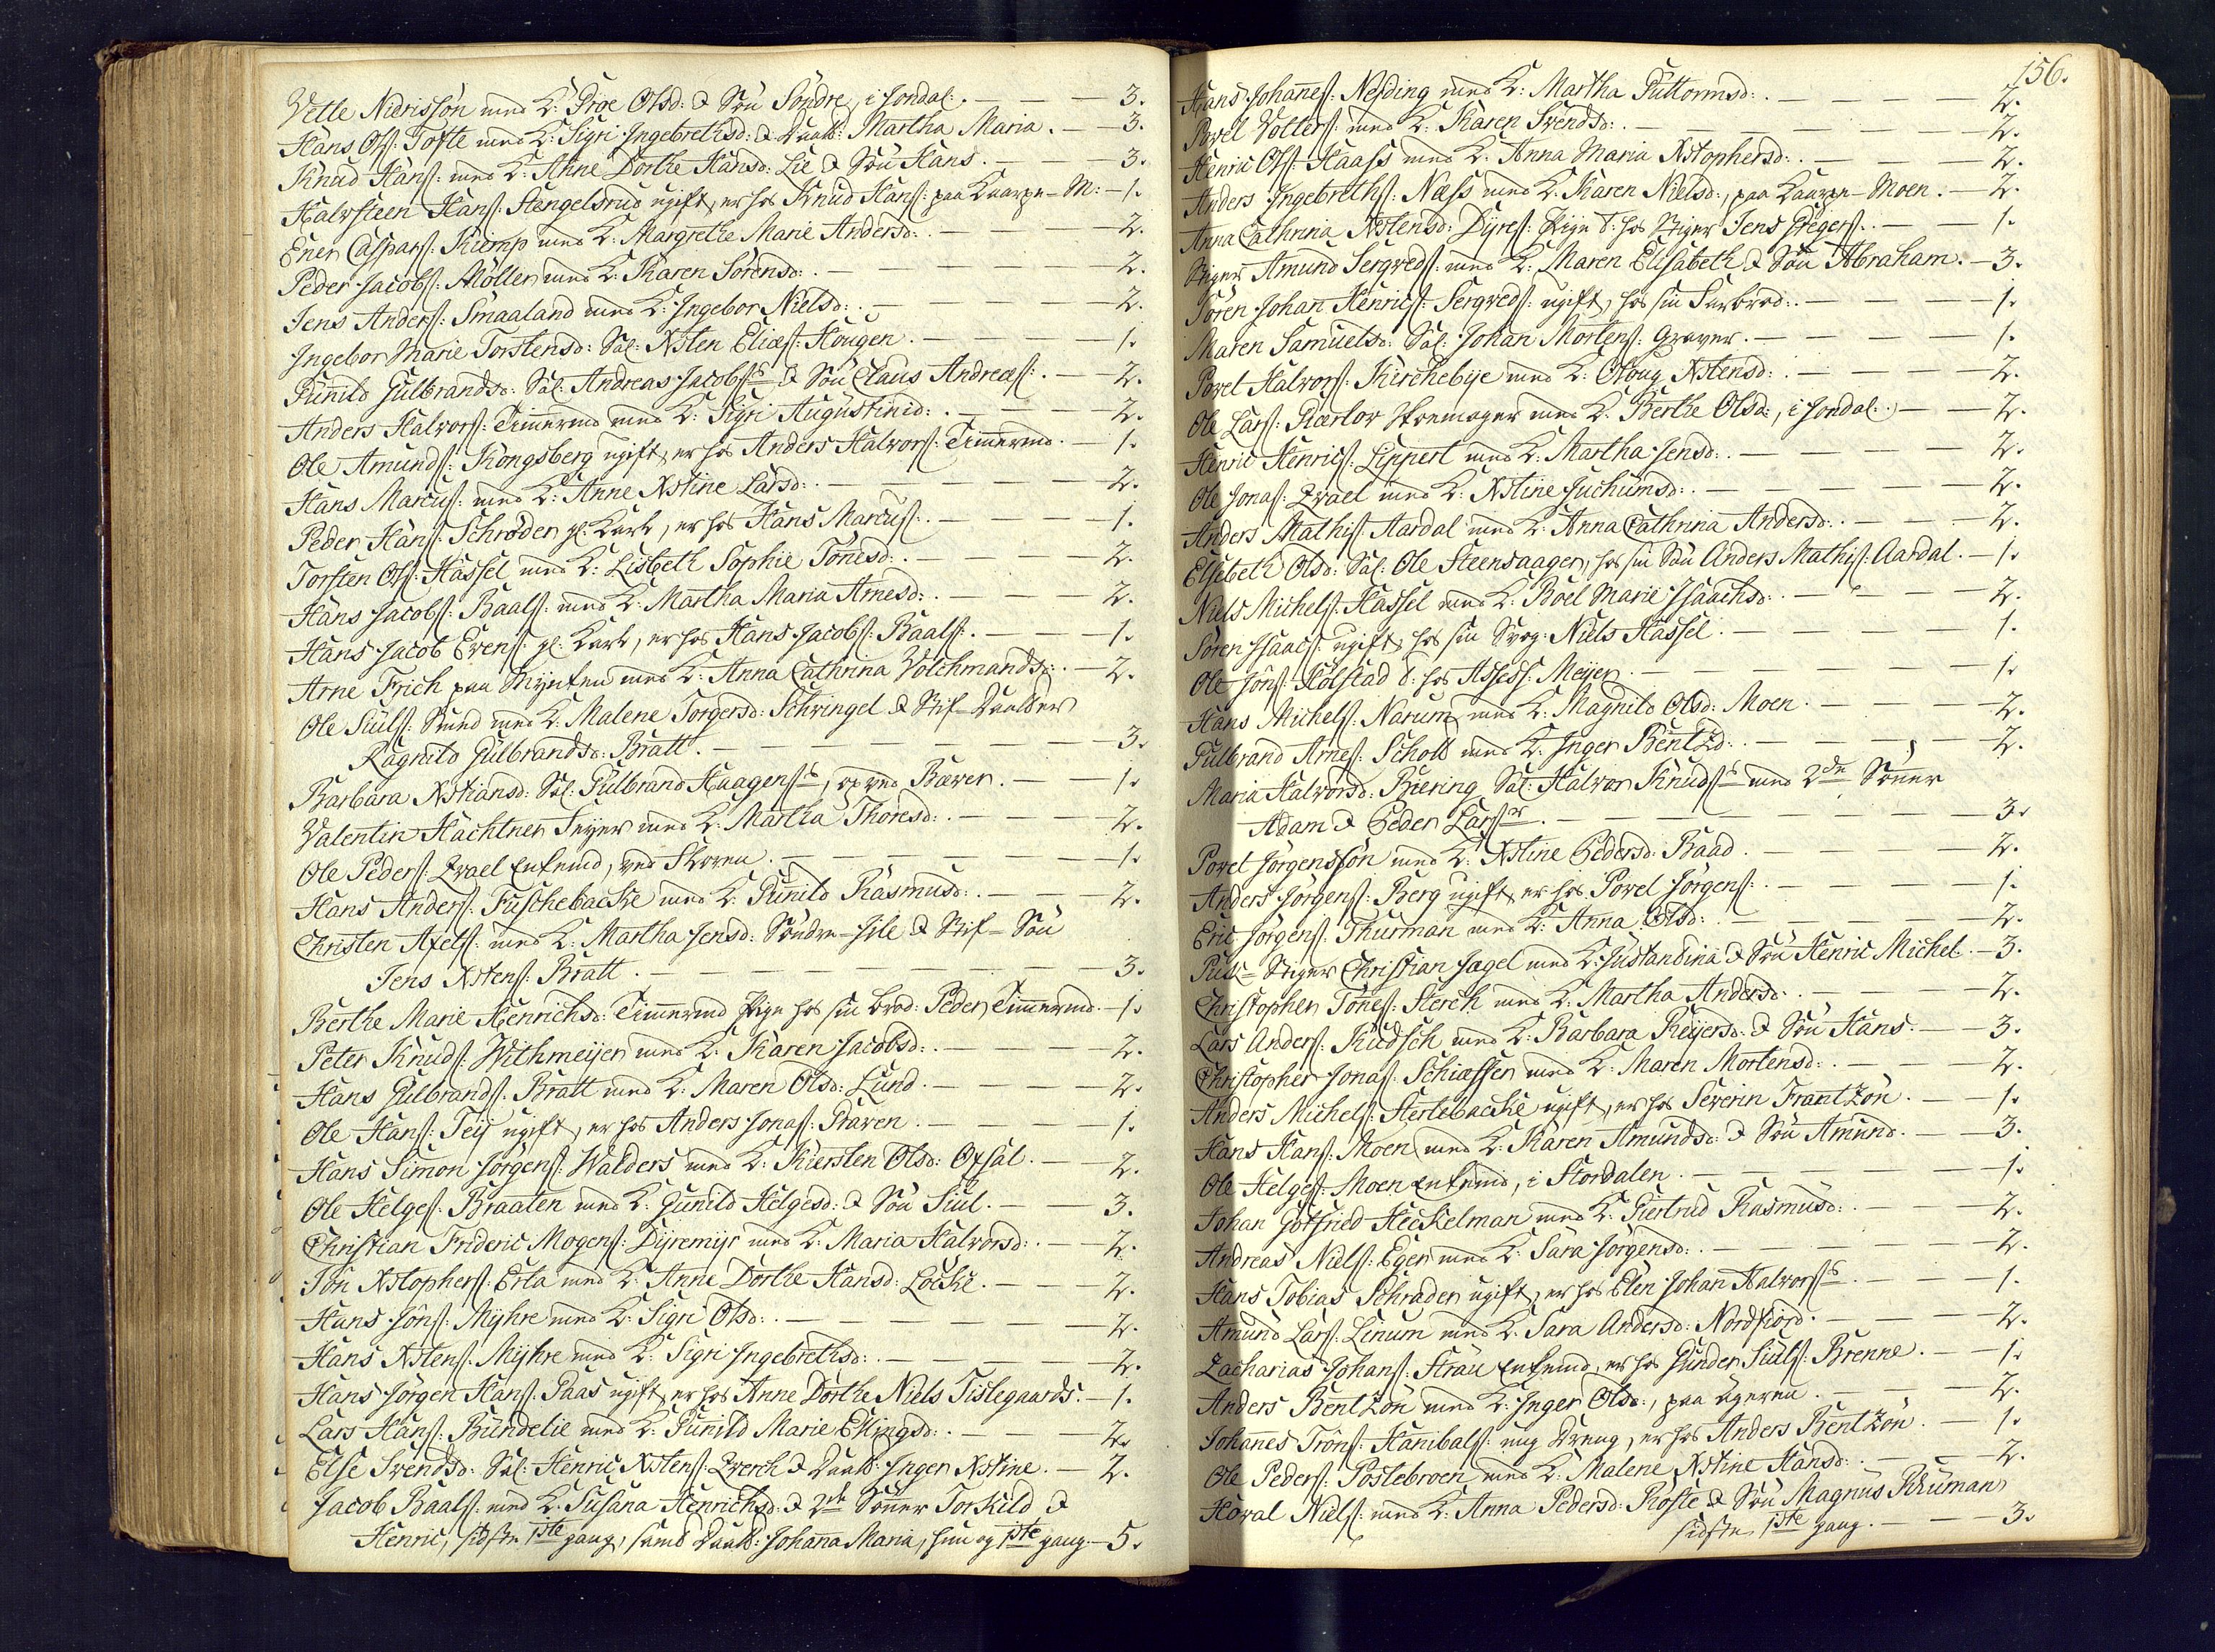 Vette Nierisson med K: Proe Olsd: & Søn Søndre, i Jondal. — — — 3.
Hans Ols: Tofte med K: Sigri Ingebrethsd: & Daatt: Martha Maria. — 3.
Knud Hans: med K: Anne Dorthe Hansd: Lie & Søn Hans. — — — 3.
Halvsteen Hans: Stengelsrud ugift, er hos Knud Hans: paa Kaarpe-M: — 1.
Ener Caspars: Kiemp med K: Margrethe Marie Andersd: — — — 2.
Peder Jacobs: Möller med K: Karen Sörensd: — — — 2.
Jens Anders: Smaaland med K: Ingebor Nielsd: — — — 2.
Ingebor Marie Torstensd: Sal: Xsten Elias: Hougen. — — — 1.
Gunild Gulbrandsd: Sal: Andreas Jacobs: & Søn Claus Andreas: — — 2.
Anders Halvors: Timermd med K: Sigri Augustinid: — — — 2.
Ole Amunds: Kongsberg ugift, er hos Anders Halvors: Timermd. — 1.
Hans Marcus: med K: Anne Xstine Larsd: — — — 2.
Peder Hans: Schrøder gl. Karl, er hos Hans Marcus: — — — 1.
Torsten Ols: Hassel med K: Lisbeth Sophie Tönesd: — — — 2.
Hans Jacobs: Baals: med K: Martha Maria Arnesd: — — — 2.
Hans Jacob Evens: gl. Karl, er hos Hans Jacobs: Baals: — — — 1.
Arne Frich paa Mynten med K: Anna Cathrina Volchmandsd: — 2.
Ole Siuls: Smed med K: Malene Torgersd: Schringel & Stif-Daatter
Ragnild Gulbrandsd: Bratt. — — — 3.
Barbara Xstiansd: Sal: Gulbrand Haagens:, oppved Bæren. — — 1.
Valentin Hachtner Feyer med K: Martha Thoresd: — — — 2.
Ole Peders: Zrael Enkemd, ved Skoven. — — — 1.
Hans Anders: Fuschebacke med K: Gunild Rasmusd: — — — 2.
Christen Axels: med K: Martha Jensd: Søndre-Jile & Stif-Søn
Jens Xstens: Bratt. — — — 3.
Berthe Marie Henrichsd: Timermd Pige hos sin Brod: Peder Timermd. — 1.
Peter Knuds: Withmeijer med K: Karen Jacobsd: — — — 2.
Hans Gulbrands: Bratt med K: Maren Olsd: Lund. — — — 2.
Ole Hans: Teij ugift, er hos Anders Jonas: Praven. — — — 1.
Hans Simon Jörgens: Walders med K: Kiersten Olsd: Opsal. — — 2.
Ole Helges: Braaten med K: Gunild Helgesd: & Søn Siul. — — 3.
Christian Frideric Mogens: Dyremyr med K: Maria Halvorsd: — — 2.
Jon Xstophers: Erta med K: Anne Dorthe Hansd: Locke. — — 2.
Hans Jöns: Myhre med K: Sigri Olsd: — — — 2.
Hans Xstens: Myhre med K: Sigri Ingebrethsd: — — — 2.
Hans Jörgen Hans: Paas ugift, er hos Anne Dorthe Niels Tislegaards. — 1.
Lars Hans: Bundelie med K: Gunild Marie Ellingsd: — — — 2.
Else Svendsd: Sal: Henric Xstens: Zverch & Daatt: Inger Xstine. — 2.
Jacob Baals: med K: Susana Henrichsd: & 2de Sønner Torkild &
Henric, sidste 1ste gang, samt Daatt: Johana Maria, hun og 1ste gang — 5.
156.
Hans Johanes: Nesding med K: Martha Guttormsd: — — — 2.
Povel Volters: med K: Karen Svendsd: — — — 2.
Henric Ols: Haass med K: Anna Maria Xstophersd: — — — 2.
Anders Ingebreths: Næss med K: Karen Nielsd:, paa Kaarpe-Moen. — 2.
Anna Cathrina Xstensd: Dyres: Pige T: hos Stiger Jens Gregers: — — 1.
Stiger Amund Sergveds: med K: Maren Elisabeth & Søn Abraham. — 3.
Søren Johan Henrics: Sergveds: ugift, hos sin Farbrod: — — — 1.
Maren Samuelsd: Sal: Johan Mortens: Graver. — — — 1.
Povel Halvors: Kirchebye med K: Oloug Xstensd: — — — 2.
Ole Lars: Kærlov Skomager med K: Berthe Olsd:, i Jondal. — — 2.
Henric Henrics: Lippert med K: Martha Jensd: — — — 2.
Ole Jonas: Zrael med K: Xstine Juchumsd: — — — 2.
Anders Mathis: Aardal med K: Anna Cathrina Andersd: — — — 2.
Elsebeth Olsd: Sal: Ole Steensaager, hos sin Søn Anders Mathis: Aardal. — 1.
Niels Michels: Hassel med K: Boel Marie Isaachsd: — — — 2.
Søren Isaacs: ugift, hos sin Svog: Niels Hassel. — — — 1.
Ole Jöns: Kolstad T: hos Assess: Meyer. — — — 1.
Hans Michels: Narum med K: Magnild Olsd: Moen. — — — 2.
Gulbrand Arnes: Scholl med K: Inger Bentzd: — — — 2.
Maria Halvorsd: Biering Sal: Halvor Knuds: med 2de Sønner
Adam & Peder Larss: — — — 3.
Povel Jörgenssön med K: Xstine Pedersd: Baad. — — — 2.
Anders Jörgens: Berg ugift, er hos Povel Jörgens: — — — 1.
Eric Jörgens: Thurman med K: Anna Olsd: — — — 2.
Puk-Stiger Christian Jægel med K: Justandina & Søn Henric Michel. — 3.
Christopher Tönes: Sterch med K: Martha Andersd: — — — 2.
Lars Anders: Kudsch med K: Barbara Reijersd: & Søn Hans. — — 3.
Christopher Jonas: Schiæffer med K: Maren Mortensd: — — — 2.
Anders Michels: Stertebacke ugift, er hos Severin Frantzön. — — 1.
Hans Hans: Moen med K: Karen Amundsd: & Søn Amund. — — 3.
Ole Helges: Moen Enkemd, i Stordalen. — — — 1.
Johan Gotfried Heckelman med K: Giertrud Rasmusd: — — — 2.
Andreas Niels: Eger med K: Sara Jörgensd: — — — 2.
Hans Tobias Schrader ugift, er hos Elen Johan Halvors: — — — 1.
Amund Lars: Linum med K: Sara Andersd: Nordfiord. — — — 2.
Zacharias Johans: Strau Enkemd, er hos Gunder Siuls: Brenne. — — 1.
Anders Bentzön med K: Inger Olsd:, paa Ageren. — — — 2.
Johannes Tröns: Hanibals: ung Dreng, er hos Anders Bentzön. — — 1.
Ole Peders: Postebroen med K: Malene Xstine Hansd: — — — 2.
Hoval Niels: med K: Anna Pedersd: Roste & Søn Magnus Kruman
sidste 1ste gang. — — 3.